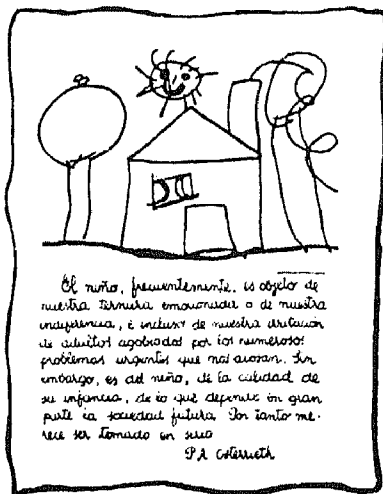 El niño, frecuentemente, es objeto de
nuestra ternura emocionada o de nuestra
indiferencia, e incluso de nuestra irritación
de adultos agobiados por los numerosos
problemas urgentes que nos acosan. Sin
embargo, es del niño, de la calidad de
su infancia, de lo que depende en gran
parte la sociedad futura. Por tanto me-
rece ser tomado en serio
P.A. Osterrieth